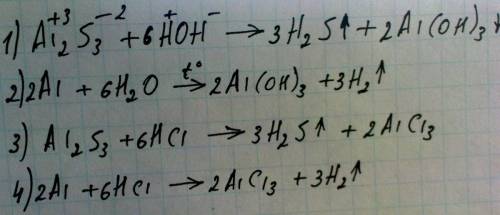 1) Al₂⁺³S₃⁻² + 6H⁺OH⁻ → 3H₂S↑ + 2Al(OH)₃↓
2) 2Al + 6H₂O t°→ 2Al(OH)₃ + 3H₂↑
3) Al₂S₃ + 6HCl → 3H₂S↑ + 2AlCl₃
4) 2Al + 6HCl → 2AlCl₃ + 3H₂↑